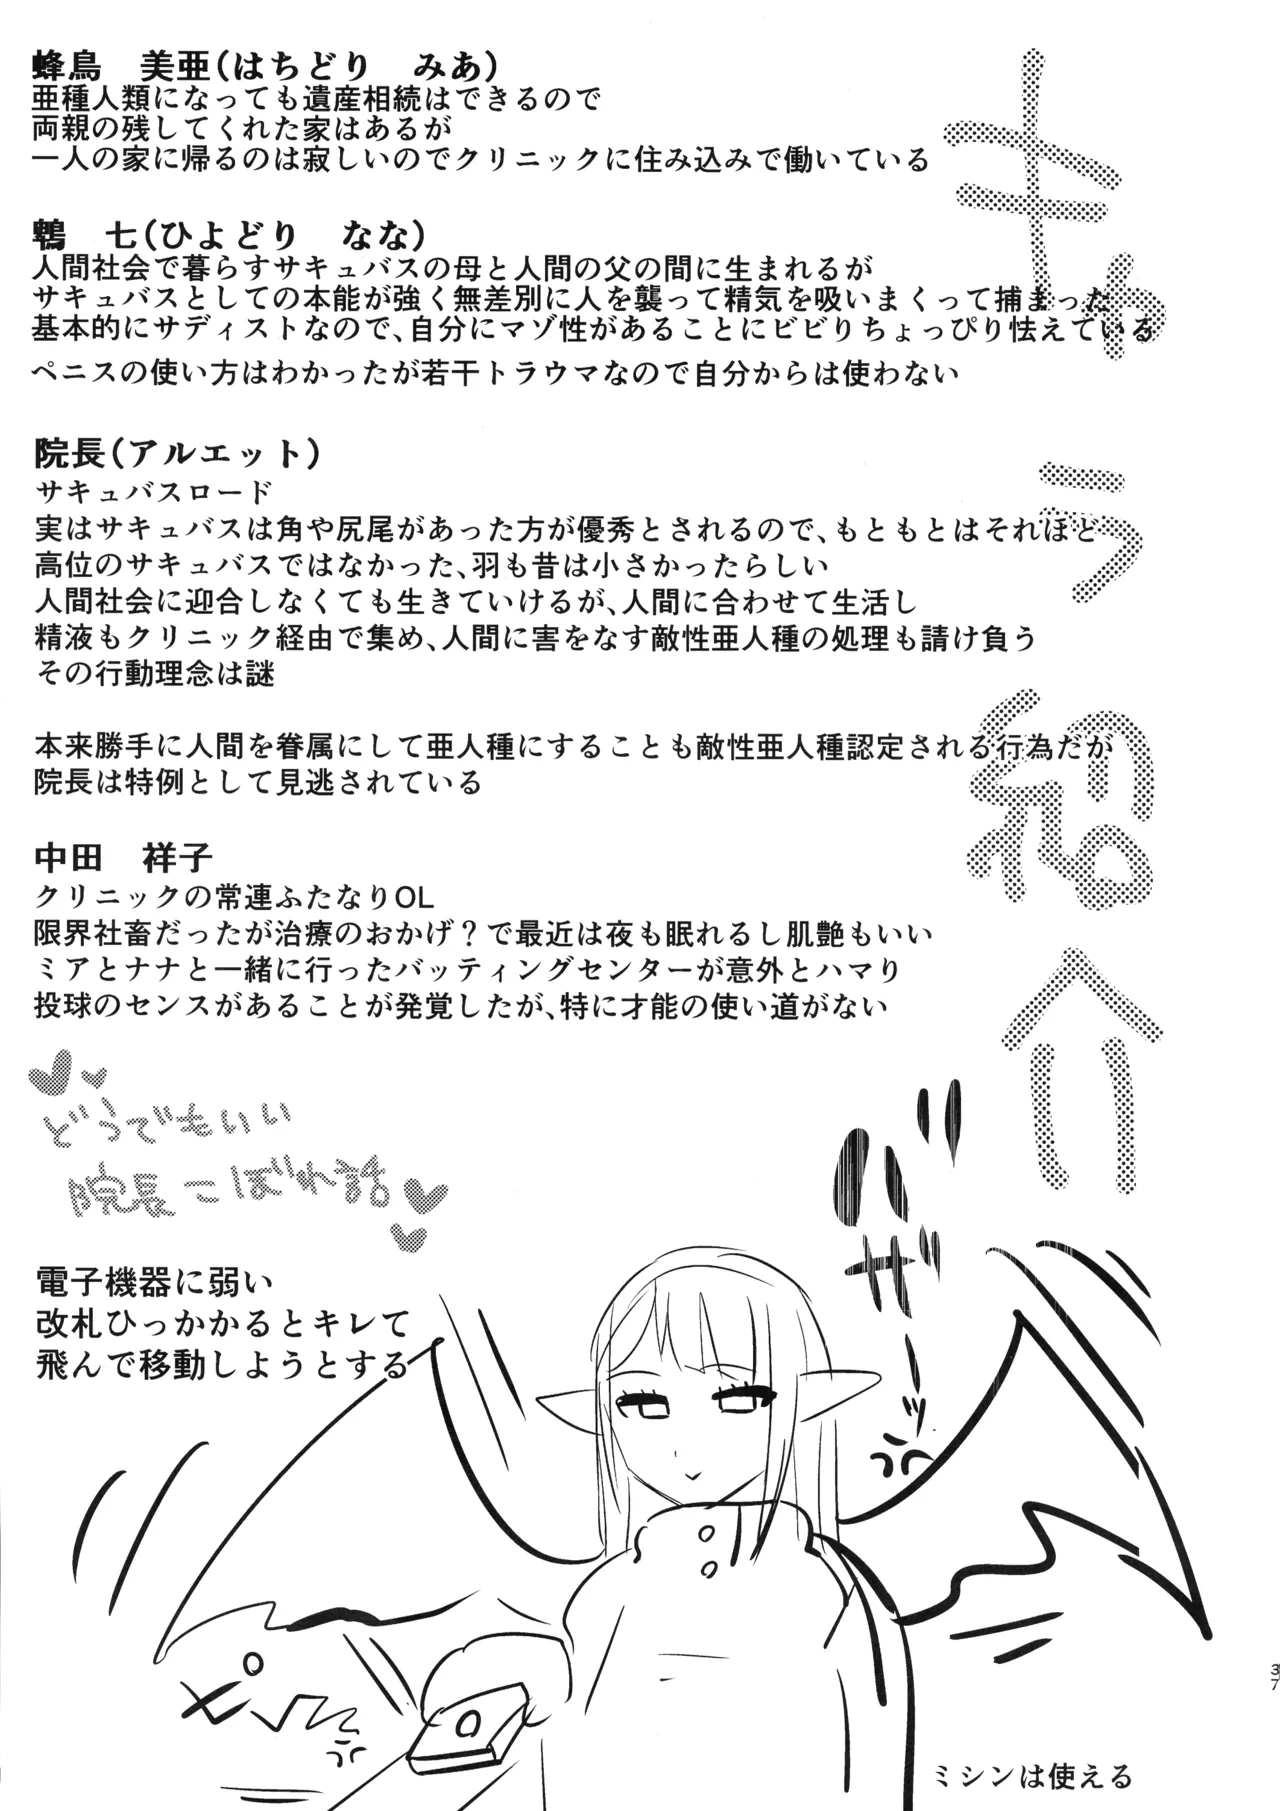 キャラ紹介
蜂鳥　美亜(はちどり　みあ)
亜種人類になっても遺産相続はできるので
両親の残してくれた家はあるが
一人の家に帰るのは寂しいのでクリニックに住み込みで働いている
鵯　七(ひよどり　なな)
人間社会で暮らすサキュバスの母と人間の父の間に生まれるが
サキュバスとしての本能が強く無差別に人を襲って精気を吸いまくって捕まった
基本的にサディストなので、自分にマゾ性があることにビビりちょっぴり怯えている
ペニスの使い方はわかったが若干トラウマなので自分からは使わない
院長(アルエット)
サキュバスロード
実はサキュバスは角や尻尾があった方が優秀とされるので、もともとはそれほど
高位のサキュバスではなかった、羽も昔は小さかったらしい
人間社会に迎合しなくても生きていけるが、人間に合わせて生活し
精液もクリニック経由で集め、人間に害をなす敵性亜人種の処理も請け負う
その行動理念は謎
本来勝手に人間を眷属にして亜人種にすることも敵性亜人種認定される行為だが
院長は特例として見逃されている
中田　祥子
クリニックの常連ふたなりOL
限界社畜だったが治療のおかげ？で最近は夜も眠れるし肌艶もいい
ミアとナナと一緒に行ったバッティングセンターが意外とハマり
投球のセンスがあることが発覚したが、特に才能の使い道がない
どうでもいい
院長こぼれ話
電子機器に弱い
改札ひっかかるとキレて
飛んで移動しようとする
バザーッ
ミシンは使える
37